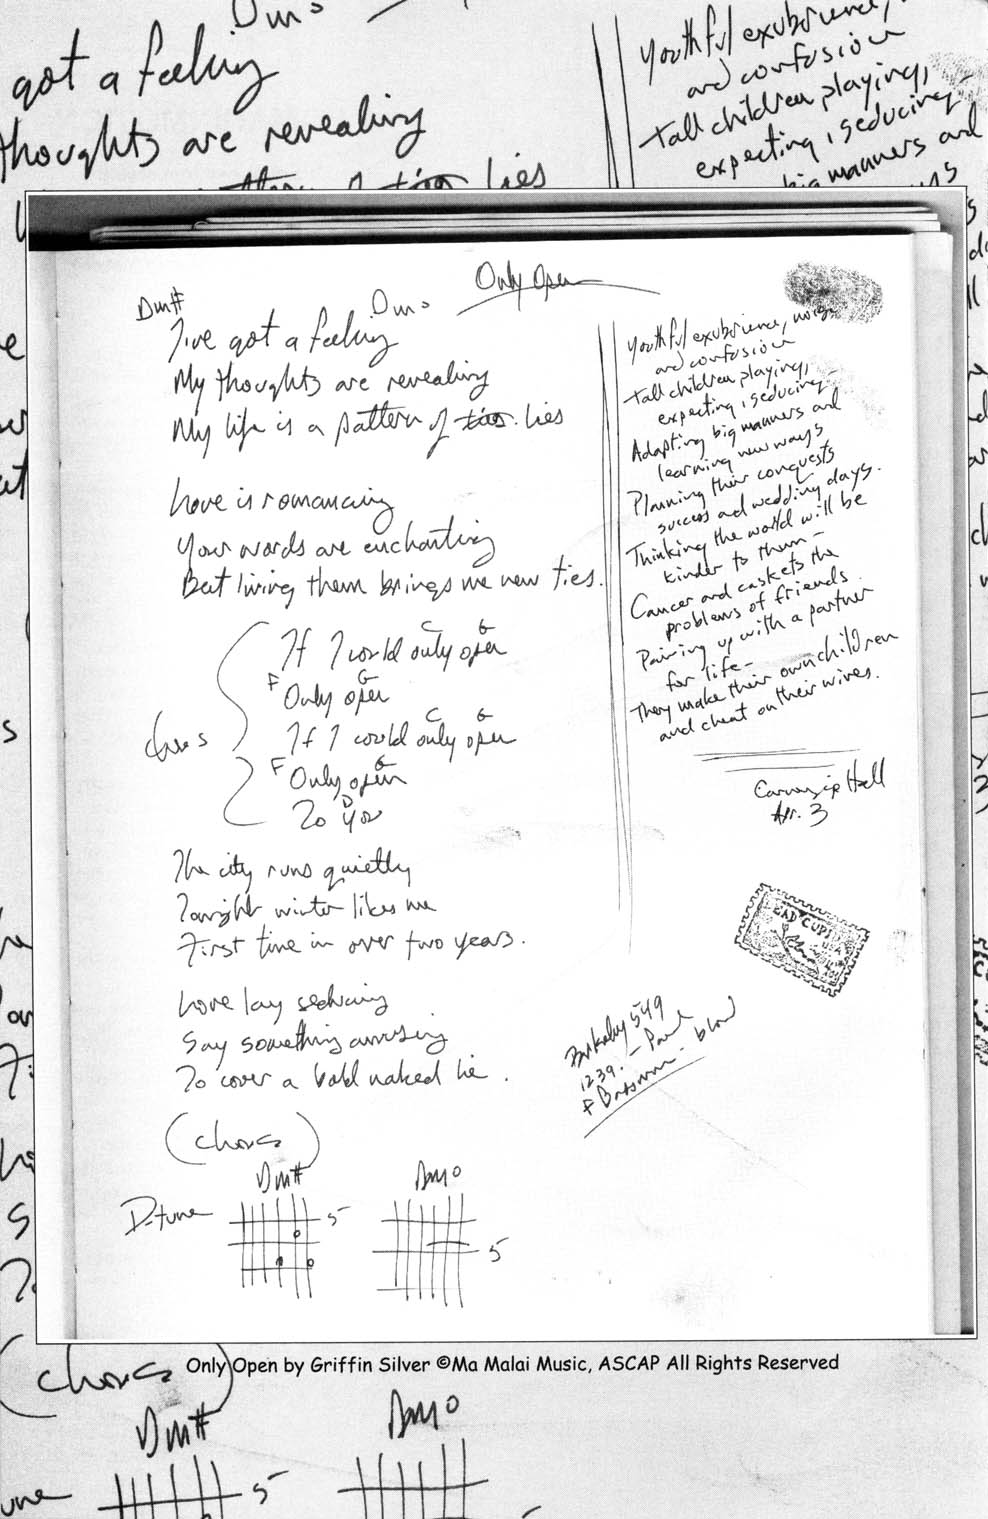 Only Open
Dm# Dmo
I've got a feeling
My thoughts are revealing
My life is a pattern of ties. lies
Love is romancing
Your words are enchanting
But living them brings me new ties.
C G
If I could only open
F G
Only open
C G
If I could only open
F G
Only open
D
To you
chorus
The city runs quietly
Tonight winter likes me
First time in over two years.
Love lay seducing
Say something amusing
To cover a bold naked lie.
(chorus)
Dm# Dmo
D-tune 5 5
Youthful exuberience, noise,
and confusion
Tall children playing,
expecting, seducing -
Adapting big manners and
learning new ways
Planning their conquests
success and wedding days.
Thinking the world will be
kinder to them -
Cancer and caskets the
problems of friends
Pairing up with a partner
for life -
They make their own children
and cheat on their wives.
Carnegie Hall
Apr. 3
BAD CUPID
USA
Berkeley 549
1239. - Paul
Only Open by Griffin Silver ©Ma Malai Music, ASCAP All Rights Reserved
Dmo
got a feeling
thoughts are revealing
lies
Youthful exuberience,
and confusion
Tall children playing,
expecting, seducing -
big manners and
(chorus)
Dm# Dmo
5